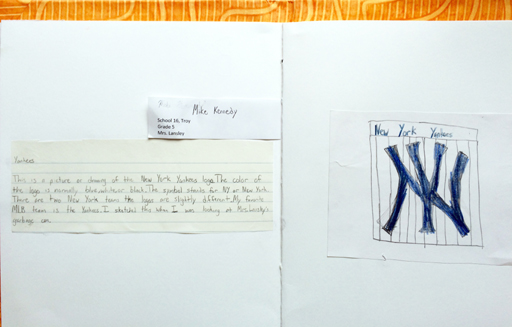 Mike Kennedy
School 16, Troy
Grade 5
Mrs. Lansley
Yankees
This is a picture or drawing of the New York Yankees logo. The color of
the logo is normally blue, white, or black. The symbol stands for NY or New York.
There are two New York teams the logos are slightly different. My favorite
MLB team is the Yankees. I sketched this when I was looking at Mrs.
garbage can.
New York Yankees
NY